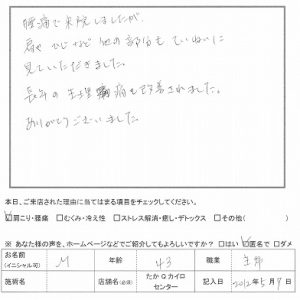 腰痛で来院しましたが
肩や ひじ など 他の部分も ていねいに
見ていただきました。
長年の生理痛も改善されました。
ありがとうございました。
本日、ご来店された理由に当てはまる項目をチェックしてください。
☑肩こり・腰痛 □むくみ・冷え性 □ストレス解消・癒し・デトックス □その他( )
※ あなた様の声を、ホームページなどでご紹介してもよろしいですか? □はい ☑匿名で □ダメ
お名前 (イニシャル可) M 年齢 43 職業 主婦
施術名 店舗名(必須) たかQカイロセンター 2012年5月9日